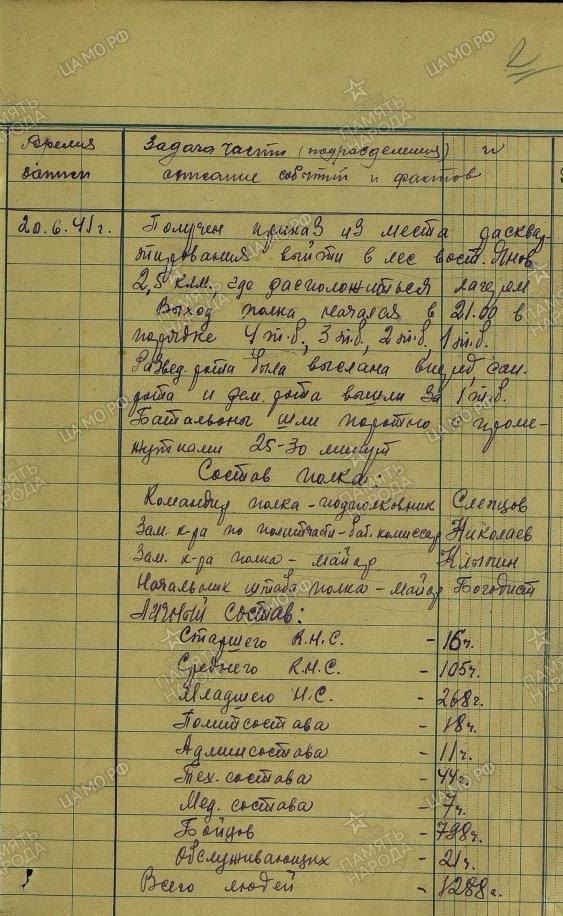 2
Время записи
Задача части (подразделения) и
описание событий и фактов
20.6.41г.
Получен приказ из места расквар-
тирования выйти в лес вост. Янов
2,5 клм. где расположиться лагерем
Выход полка начался в 21.00 в
порядке 4 т.б., 3 т.б., 2 т.б. 1 т.б.
Развед. рота была выслана вперед, сан.
рота и рем. рота вышли за 1 т.б.
Батальоны шли поротно с проме-
жутками 25-30 минут
Состав полка:
Командир полка - подполковник Слепцов
Зам. к-ра по политчасти - бат. комиссар Николаев
Зам. к-ра полка - майор
Начальник штаба полка - майор Богодист
Личный состав:
Старшего К.Н.С. - 16ч.
Среднего К.Н.С. - 105ч.
Младшего Н.С. - 268ч.
Политсостава - 18ч.
Админсостава - 11ч.
Тех. состава - 44ч.
Мед. состава - 7ч.
Бойцов - 798ч.
Обслуживающих - 21ч.
Всего людей - 1288ч.
ЦАМО.РФ
ПАМЯТЬ НАРОДА